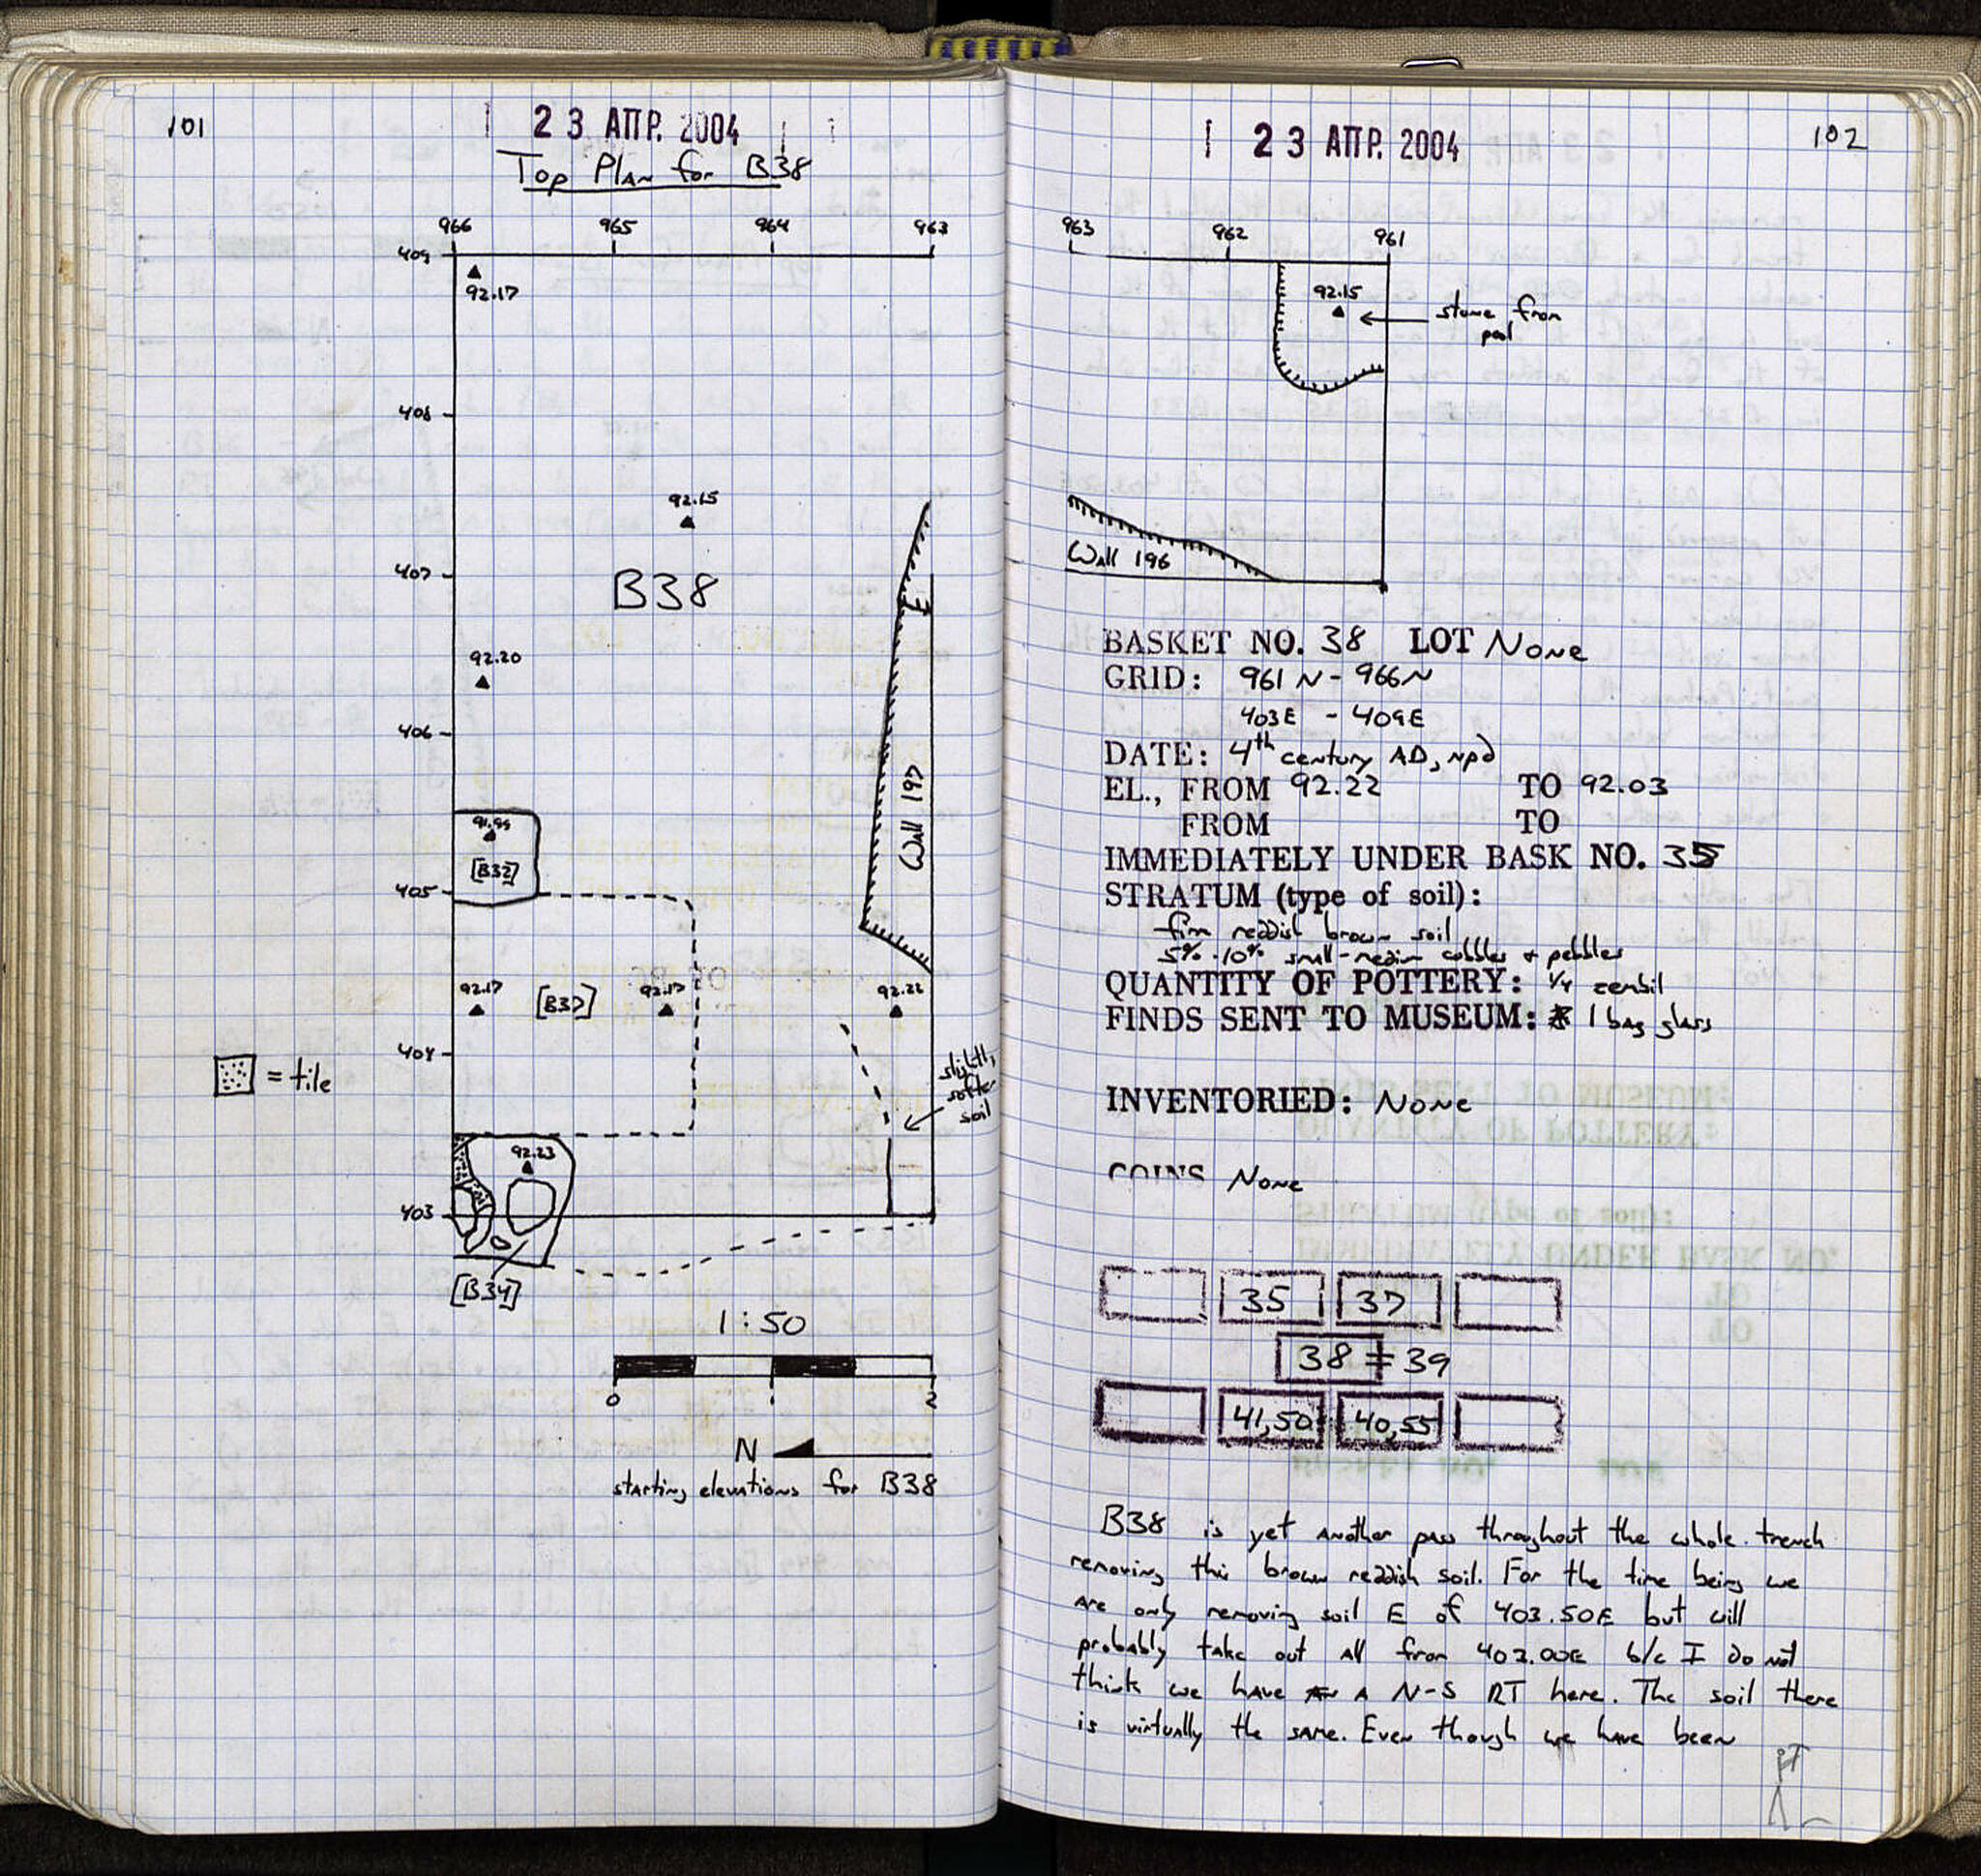 101
23 ΑΠΡ. 2004
Top Plan for B38
966 965 964 963
409
92.17
408
92.15
407
B38
92.20
406
Wall 197
91.99
[B32]
405
92.17 [B37] 92.17 92.22
404
= tile
slightly
softer
soil
92.23
403
[B34]
1:50
0 1 2
N
starting elevations for B38
23 ΑΠΡ. 2004
102
963 962 961
92.15
stone from
pool
Wall 196
BASKET NO. 38 LOT None
GRID: 961 N - 966N
403E - 409E
DATE: 4th century AD, npd
EL., FROM 92.22 TO 92.03
FROM TO
IMMEDIATELY UNDER BASK NO. 35
STRATUM (type of soil):
firm reddish brown soil
5% - 10% small-medium cobbles + pebbles
QUANTITY OF POTTERY: 1/4 zembil
FINDS SENT TO MUSEUM: 1 bag glass
INVENTORIED: None
COINS None
35 37
38 = 39
41,50 40,55
B38 is yet another pass throughout the whole trench
removing this brown reddish soil. For the time being we
are only removing soil E of 403.50E but will
probably take out all from 403.00E b/c I do not
think we have a N-S RT here. The soil there
is virtually the same. Even though we have been